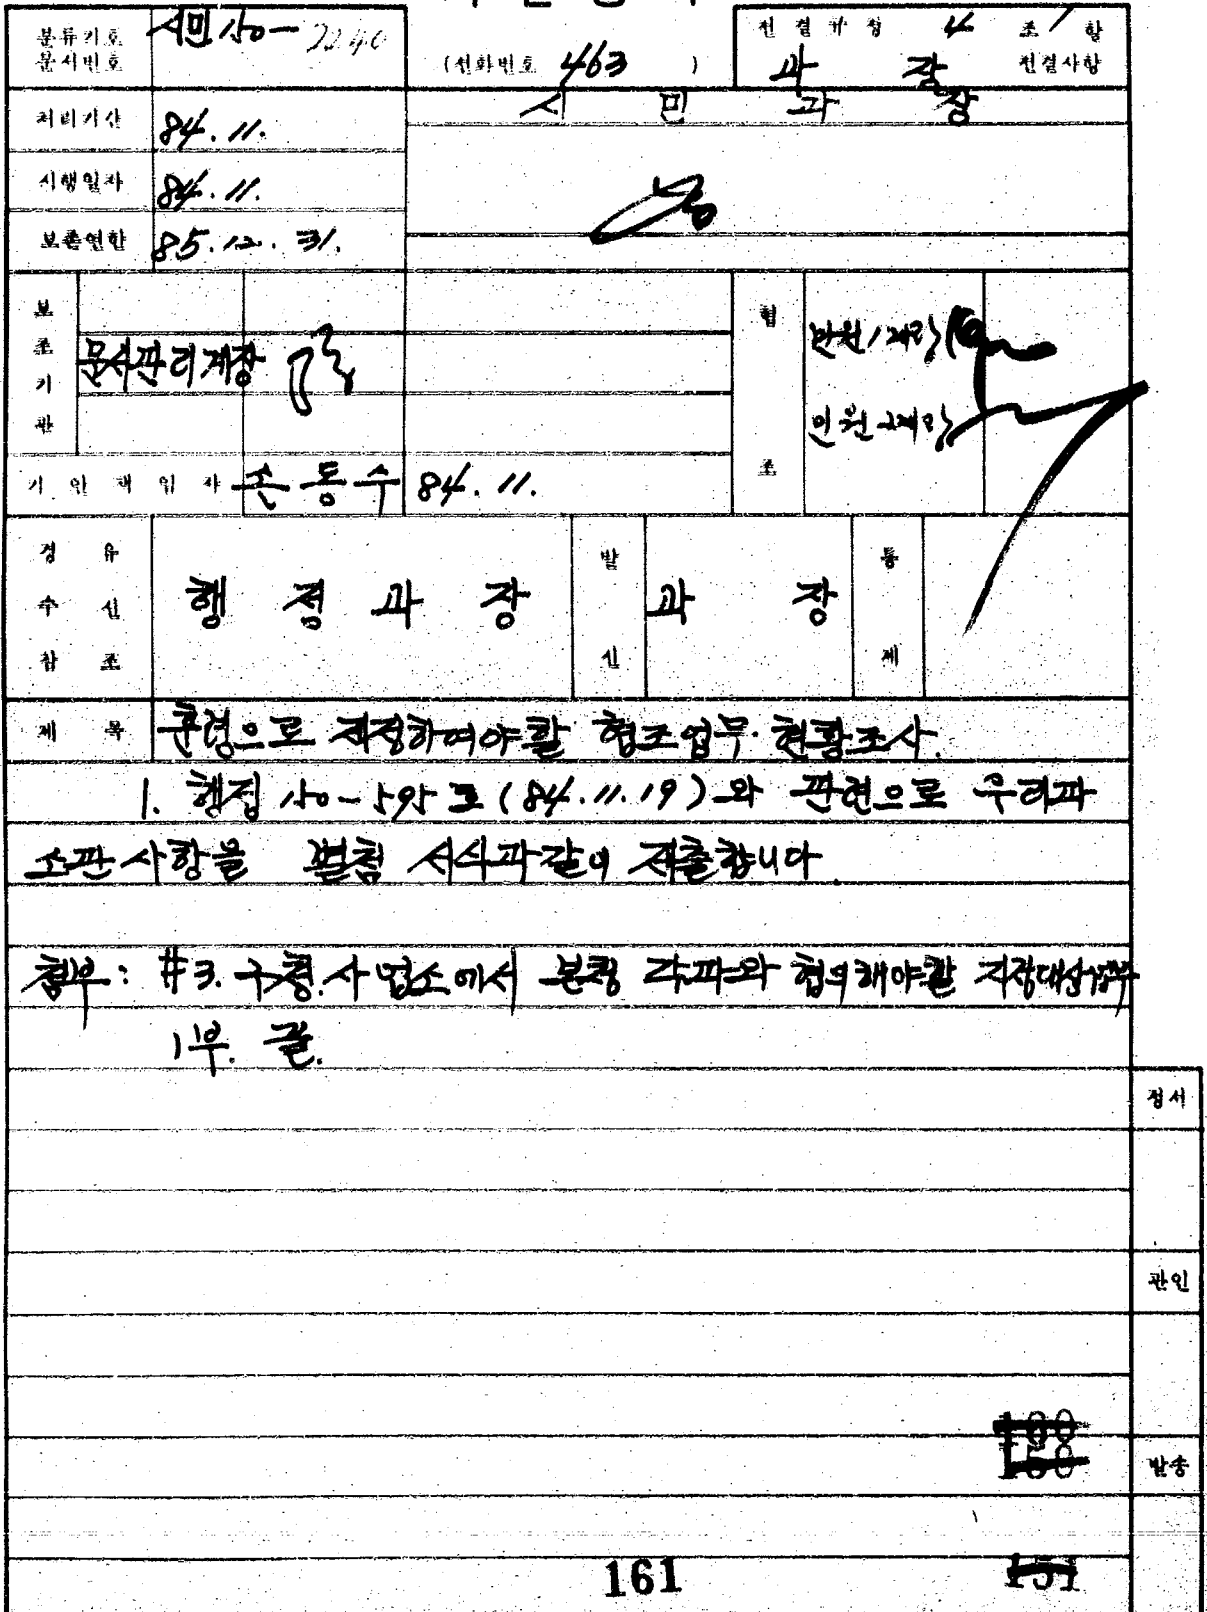 분류기호 시민 150- 2240
문서번호
(전화번호 463 )
전결규정 4 조 1 항
과 장 전결사항
처리기간 84. 11.
시 민 과 장
시행일자 84. 11.
보존연한 85. 12. 31.
보조기관
문서관리계장
협조
민원1계장
민원2계장
기안책임자 손동수 84. 11.
경유
수신
참조
행 정 과 장
발신
과 장
통제
제 목 훈령으로 제정하여야 할 협조업무 현황조사.
1. 행정 150- 호 (84. 11. 19)와 관련으로 우리과
소관사항을 별첨 서식과 같이 제출합니다.
첨부: #3. 구청.사업소에서 본청 각과와 협의해야할 지정대상업무
1부. 끝.
정서
관인
160
150
발송
161
151